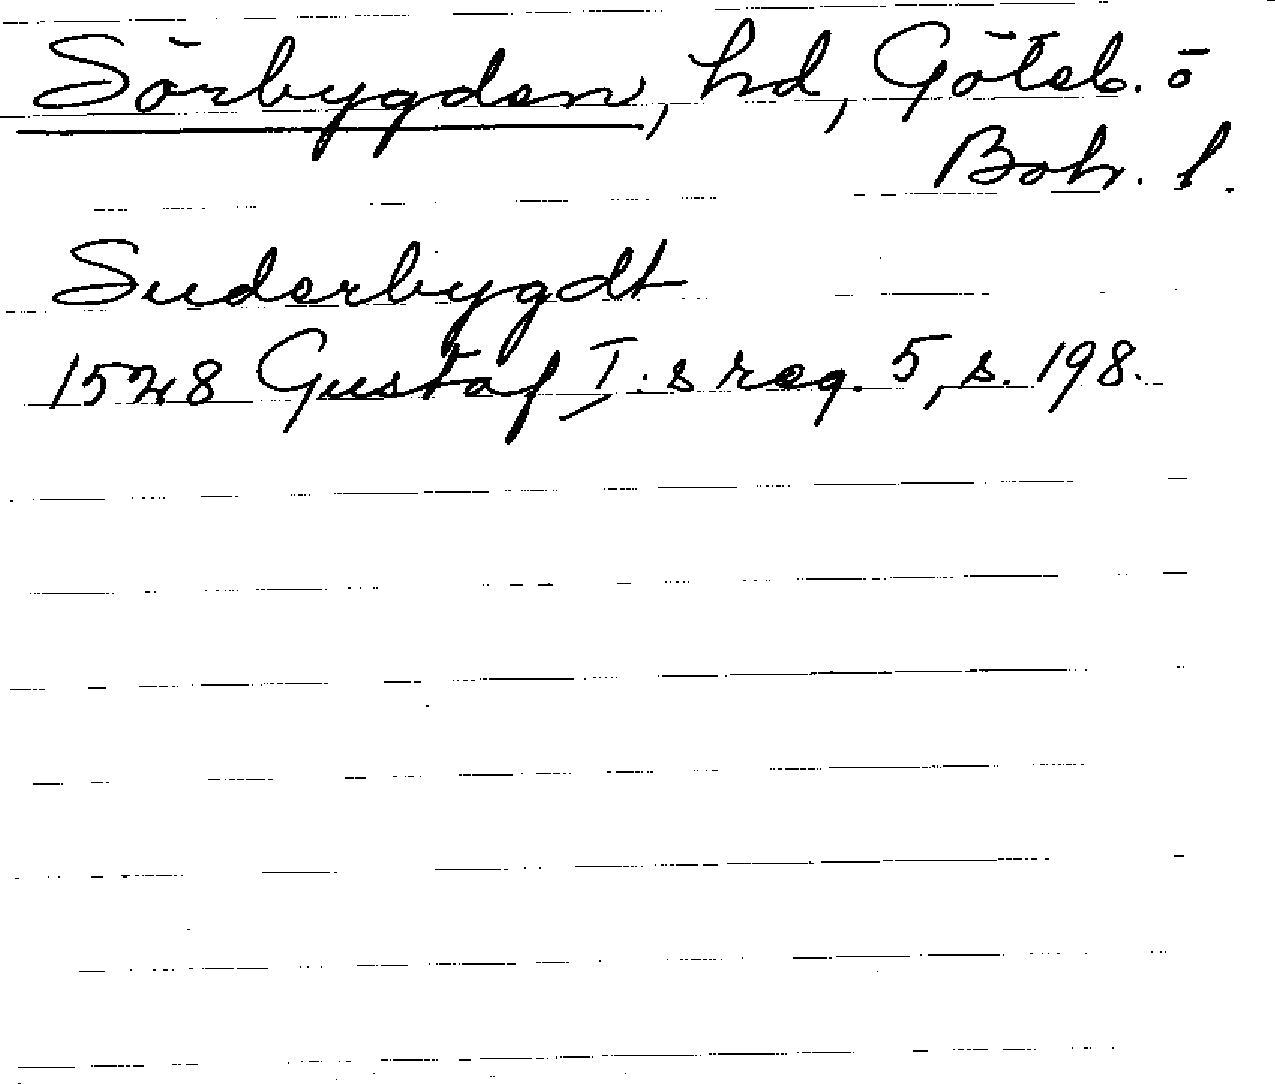 Sörbygden, hd, Göteb. ö
Boh. l.
Suderbygdt
1528 Gustaf I:s reg. 5, s. 198.